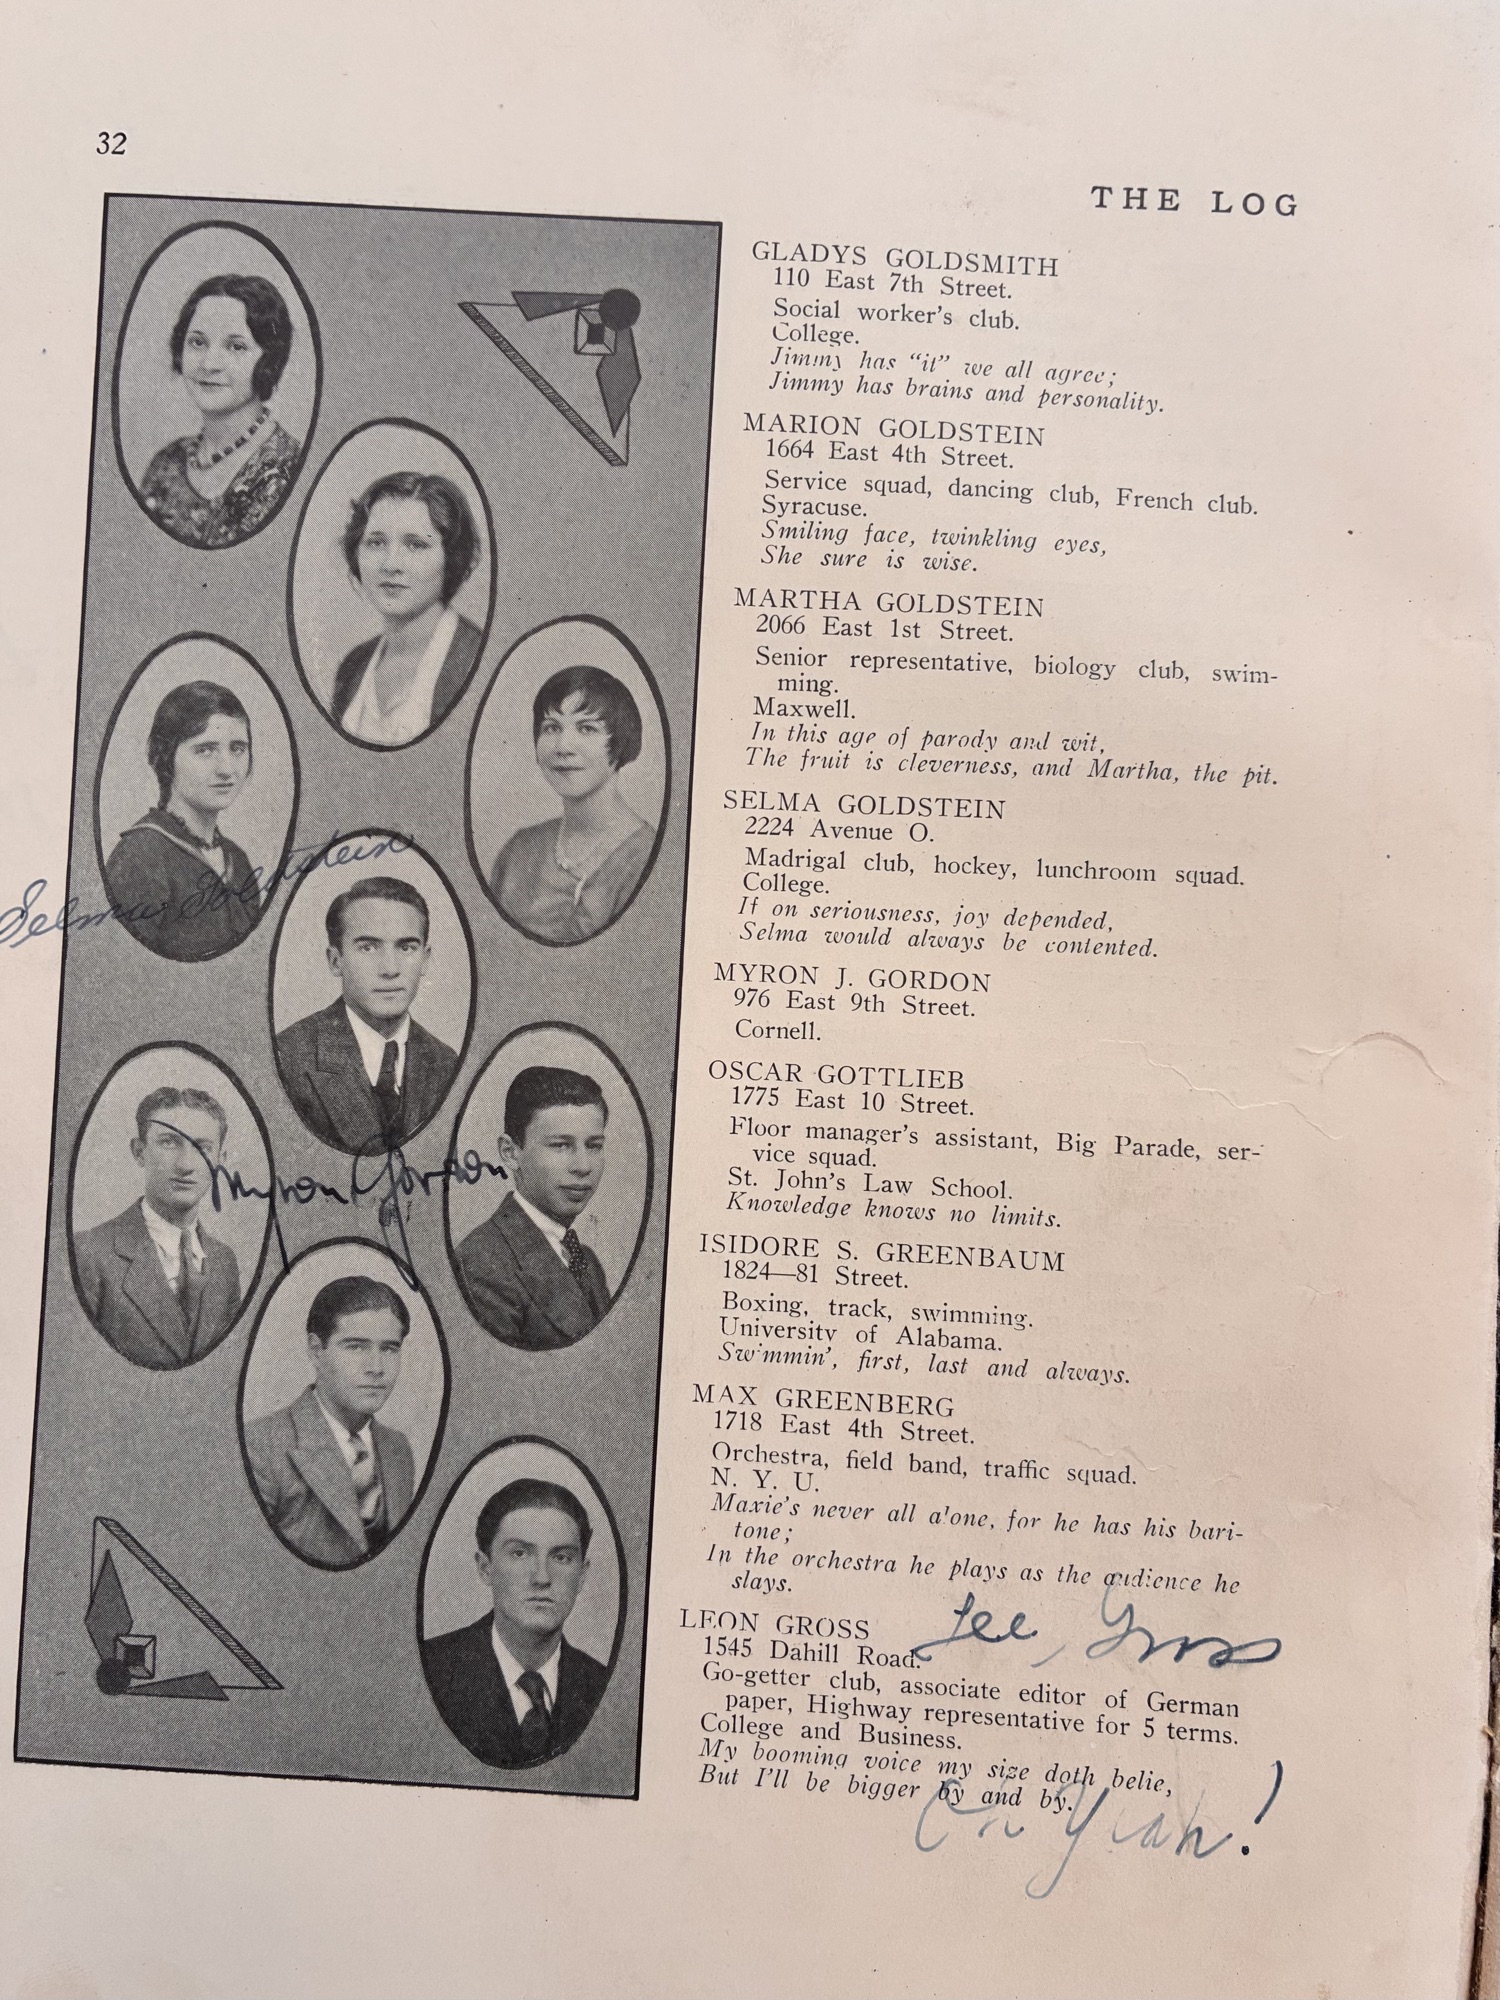 32
THE LOG
GLADYS GOLDSMITH
110 East 7th Street.
Social worker's club.
College.
Jimmy has "it" we all agree;
Jimmy has brains and personality.
MARION GOLDSTEIN
1664 East 4th Street.
Service squad, dancing club, French club.
Syracuse.
Smiling face, twinkling eyes,
She sure is wise.
MARTHA GOLDSTEIN
2066 East 1st Street.
Senior representative, biology club, swim-
ming.
Maxwell.
In this age of parody and wit,
The fruit is cleverness, and Martha, the pit.
SELMA GOLDSTEIN
2224 Avenue O.
Madrigal club, hockey, lunchroom squad.
College.
If on seriousness, joy depended,
Selma would always be contented.
Selma Goldstein
MYRON J. GORDON
976 East 9th Street.
Cornell.
Myron Gordon
OSCAR GOTTLIEB
1775 East 10 Street.
Floor manager's assistant, Big Parade, ser-
vice squad.
St. John's Law School.
Knowledge knows no limits.
ISIDORE S. GREENBAUM
1824—81 Street.
Boxing, track, swimming.
University of Alabama.
Swimmin', first, last and always.
MAX GREENBERG
1718 East 4th Street.
Orchestra, field band, traffic squad.
N. Y. U.
Maxie's never all alone, for he has his bari-
tone;
In the orchestra he plays as the audience he
slays.
LEON GROSS
Lee Gross
1545 Dahill Road.
Go-getter club, associate editor of German
paper, Highway representative for 5 terms.
College and Business.
My booming voice my size doth belie,
But I'll be bigger by and by.
Oh Yeah!